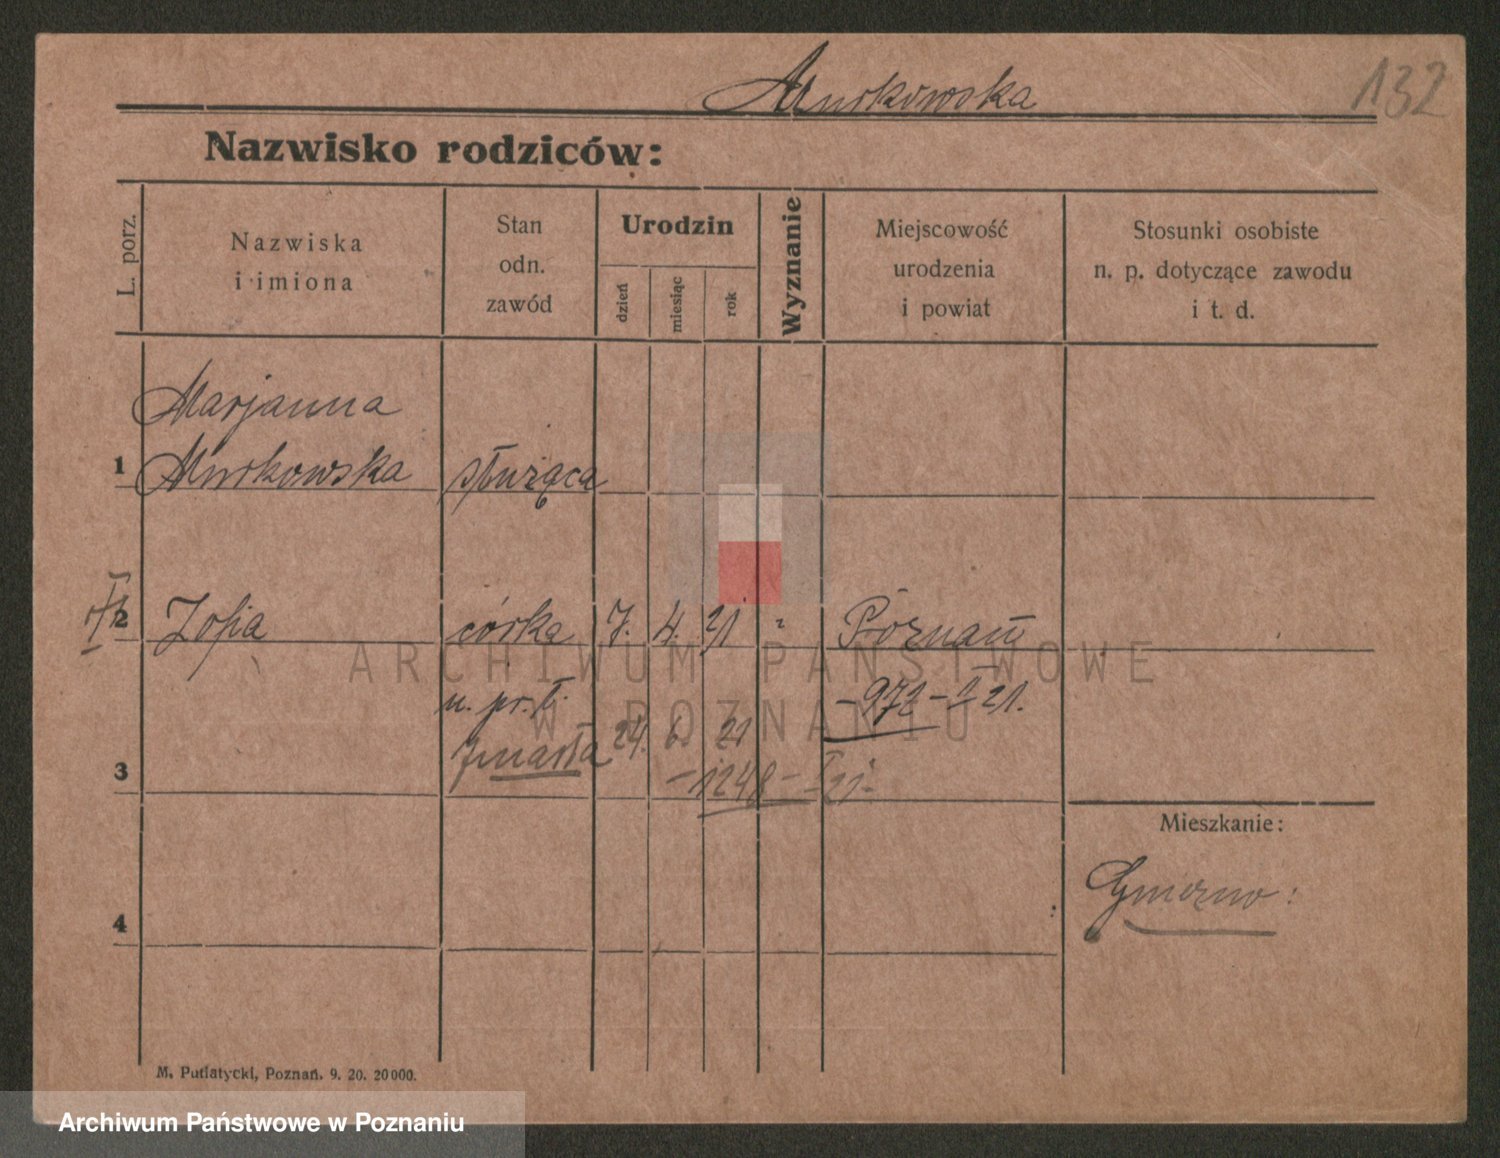 Murkowska
132
Nazwisko rodziców:
L. porz.
Nazwiska
i imiona
Stan
odn.
zawód
Urodzin
dzień
miesiąc
rok
Wyznanie
Miejscowość
urodzenia
i powiat
Stosunki osobiste
n. p. dotyczące zawodu
i t. d.
Marjanna
1 Murkowska służąca
2 Zofia córka 7. 4. 21 Poznań
n. pr. ł. -972- I 21.
zmarła 24. 6. 21
3 -1248- I 21-
Mieszkanie:
Gniezno:
4
M. Putiatycki, Poznań. 9. 20. 20000.
ARCHIWUM PAŃSTWOWE
W POZNANIU
Archiwum Państwowe w Poznaniu